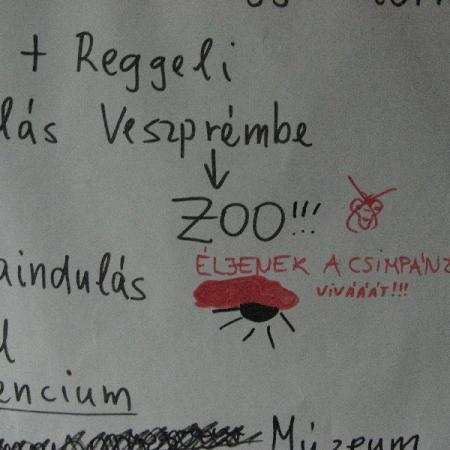 + Reggeli
lás Veszprémbe
↓
ZOO!!!
ÉLJENEK A CSIMPÁNZ
VIVÁÁÁT!!!
aindulás
encium
Múzeum